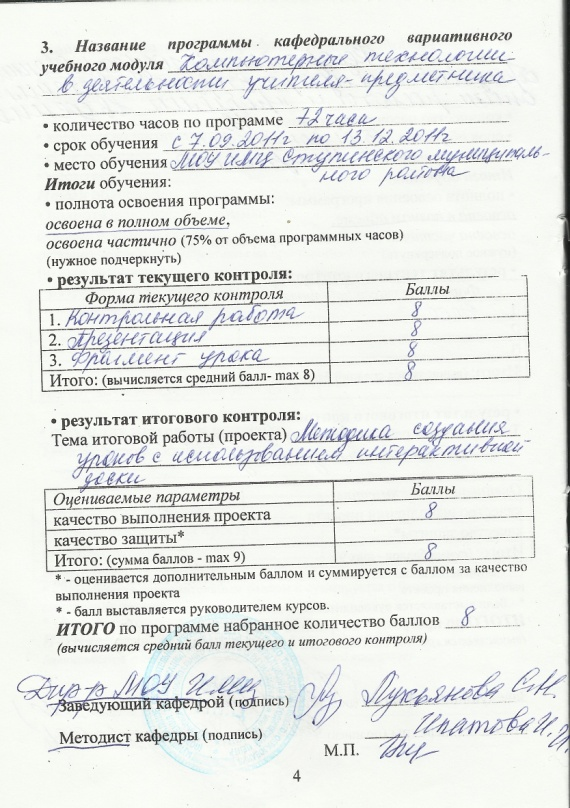 3. Название программы кафедрального вариативного
учебного модуля Компьютерные технологии
в деятельности учителя-предметника
• количество часов по программе 72 часа
• срок обучения с 7.09.2011г по 13.12.2011г
• место обучения МОУ ИМЦ Ступинского муниципаль-
ного района
Итоги обучения:
• полнота освоения программы:
освоена в полном объеме,
освоена частично (75% от объема программных часов)
(нужное подчеркнуть)
• результат текущего контроля:
Форма текущего контроля Баллы
1. Контрольная работа 8
2. Презентация 8
3. Фрагмент урока 8
Итого: (вычисляется средний балл- max 8) 8
• результат итогового контроля:
Тема итоговой работы (проекта) Методика создания
уроков с использованием интерактивной
доски
Оцениваемые параметры Баллы
качество выполнения проекта 8
качество защиты*
Итого: (сумма баллов - max 9) 8
* - оценивается дополнительным баллом и суммируется с баллом за качество
выполнения проекта
* - балл выставляется руководителем курсов.
ИТОГО по программе набранное количество баллов 8
(вычисляется средний балл текущего и итогового контроля)
Дир-р МОУ ИМЦ Лукьянова С.Н.
Заведующий кафедрой (подпись)
Ипатова И.
Методист кафедры (подпись)
М.П.
4